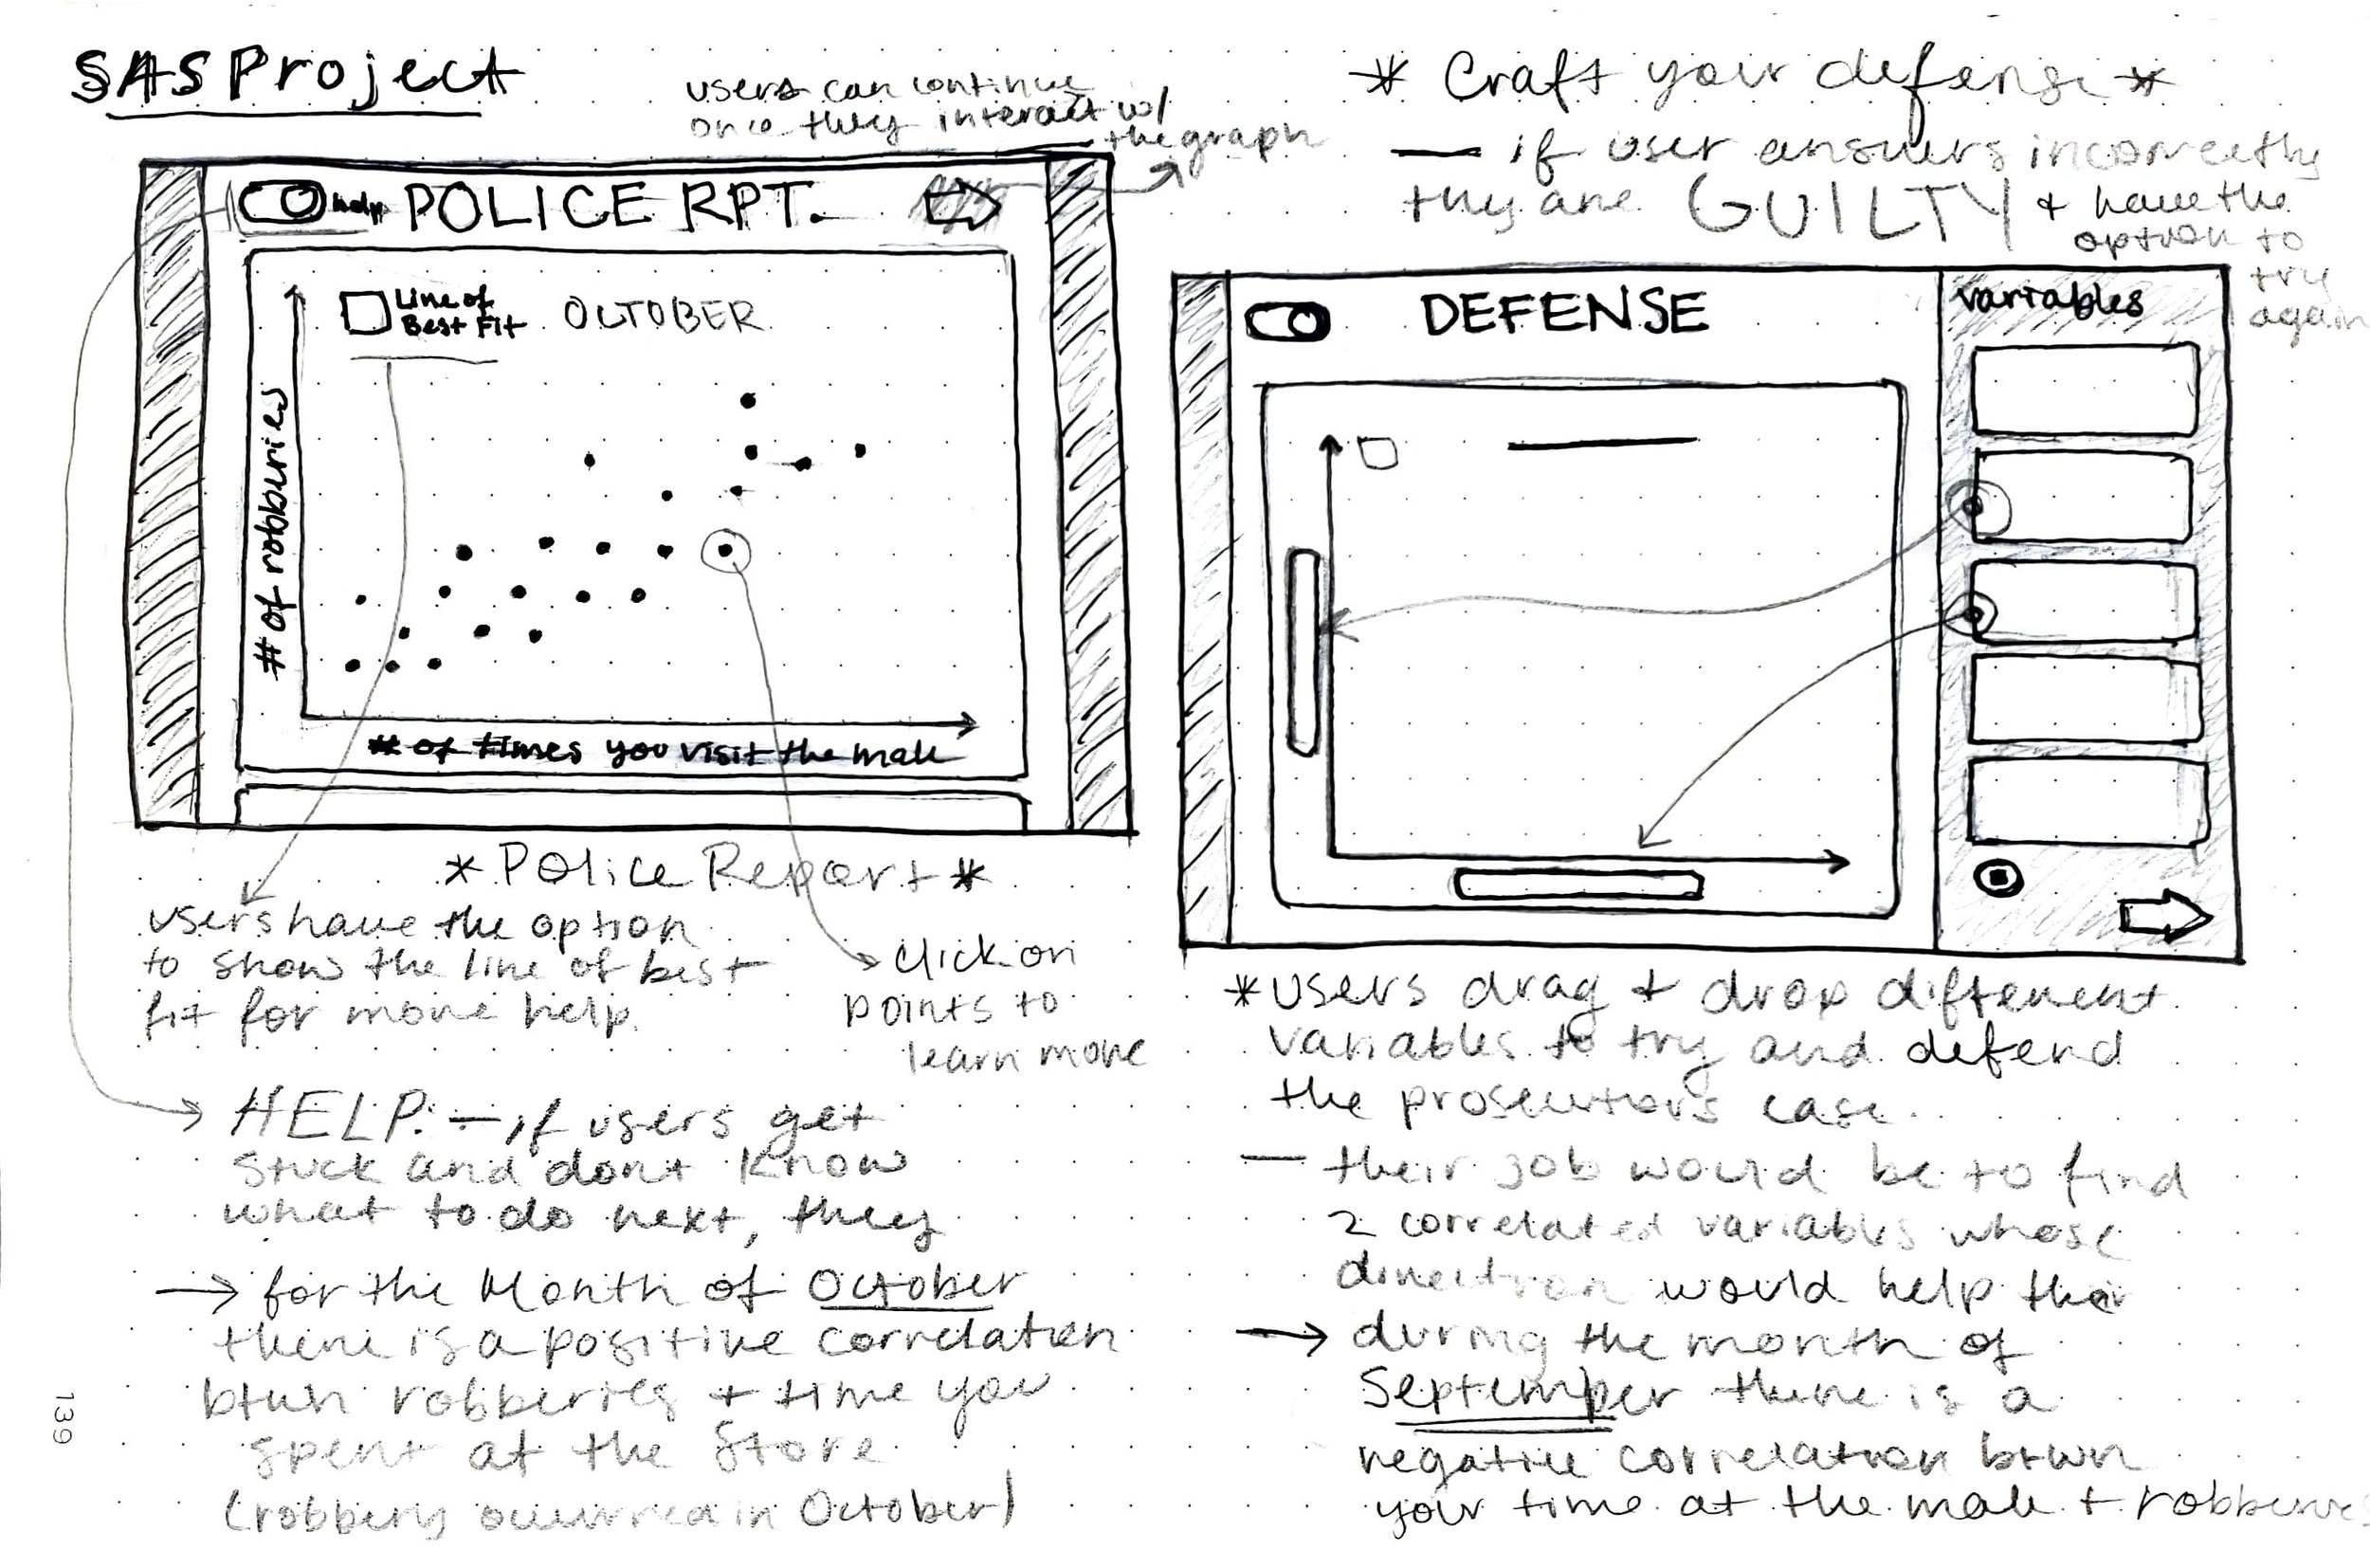 SAS Project
users can continue
once they interact w/
the graph
help POLICE RPT.
Line of
Best Fit
OCTOBER
# of robburies
# of times you visit the mall
* Police Report *
users have the option
to show the line of best
fit for more help.
click on
points to
learn more
HELP: — if users get
stuck and dont know
what to do next, they
→ for the Month of October
there is a positive correlation
btwn robberies + time you
spent at the store
(robbery occurred in October)
139
* Craft your defense *
— if user answers incorrectly
they are GUILTY + have the
option to
try
again
DEFENSE
variables
* users drag + drop different
variables to try and defend
the prosecutors case.
— their job would be to find
2 correlated variables whose
direction would help their
→ during the month of
September there is a
negative correlation btwn
your time at the mall + robberies